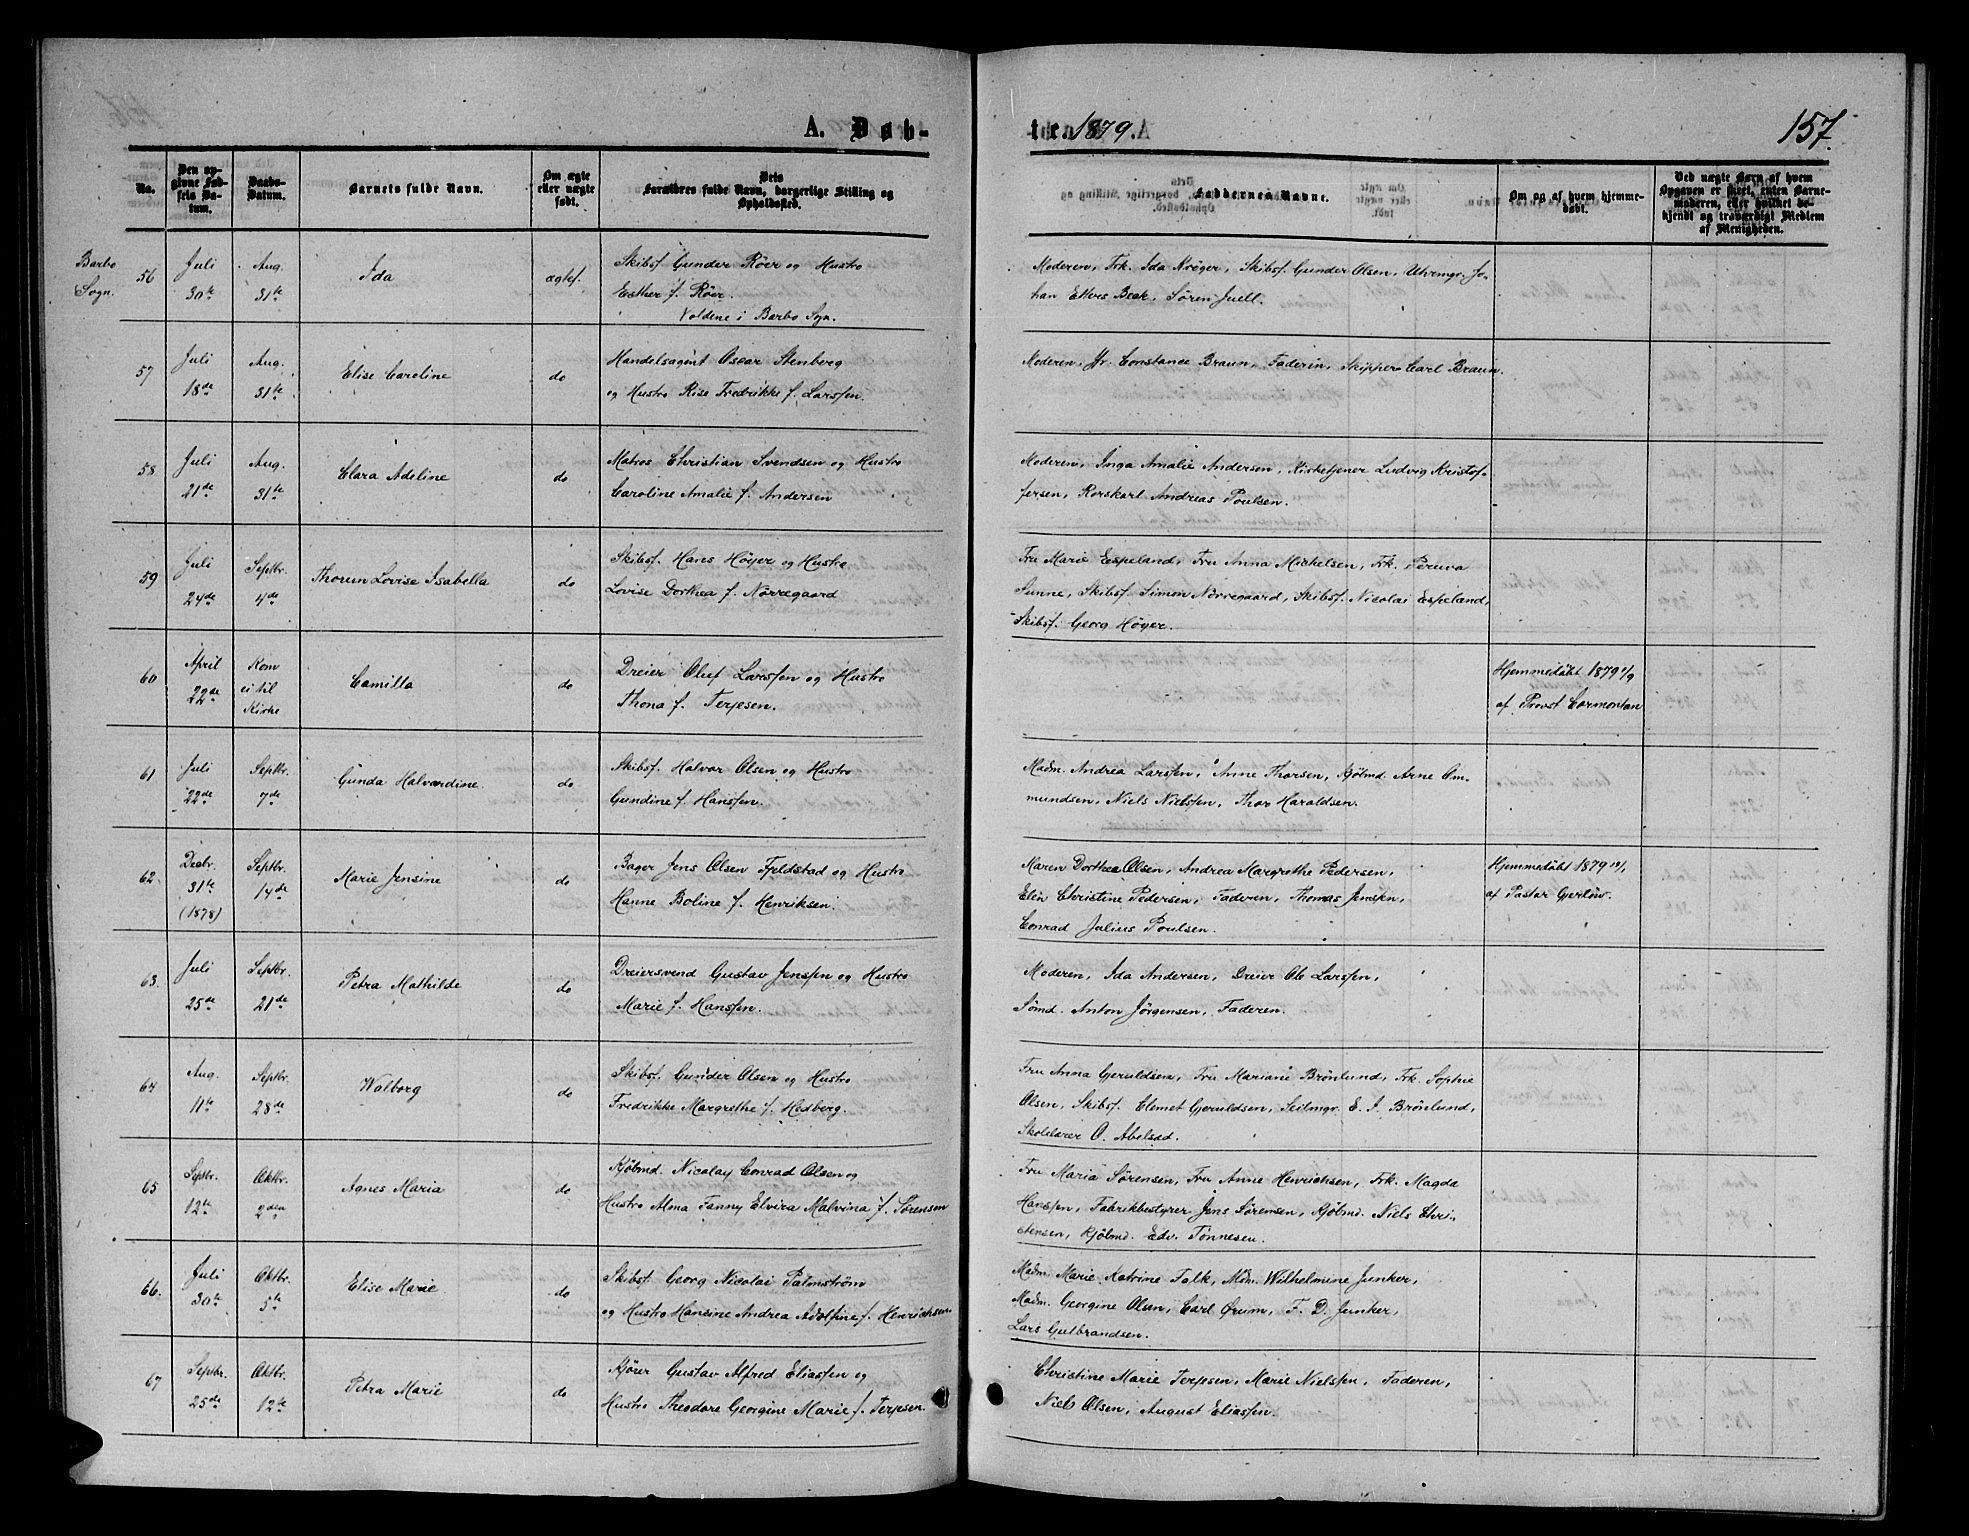 A. Døb-
te. 1879.
157.
No.
Den op-
givne Fød-
sels Da-
tum.
Daabs-
Datum.
Barnets fulde Navn.
Om ægte
eller uægte
født.
Dets
Forældres fulde Navn, borgerlige Stilling og
Opholdssted.
Faddernes Navne.
Om og af hvem hjemme-
døbt.
Ved uægte Børn af hvem
Opgaven er skeet, enten Barne-
moderen, eller hvilket be-
kjendt og troværdigt Medlem
af Menigheden.
Barbo
Sogn.
56
Juli
30te
Aug.
31te
Ida
ægtef.
Skibsf. Gunder Röer og Hustro
Esther f. Röer.
Voldene i Barbo Sogn.
Moderen, Frk. Ida Kröger, Skibsf. Gunder Olsen, Uhrmgr. Jo-
han Elters Beck, Sören Juell.
57
Juli
18de
Aug.
31te
Elise Caroline
do
Handelsagent Oscar Stenberg
og Hustro Rise Fredrikke f. Larssen.
Moderen, Fr. Constance Braun, Faderen, Skipper Carl Braun.
58
Juli
21de
Aug.
31te
Clara Adeline
do
Matros Christian Svendsen og Hustro
Caroline Amalie f. Andersen
Moderen, Inga Amalie Andersen, Kirketjener Ludvig Kristof-
fersen, Rorskarl Andreas Poulsen.
59
Juli
24de
Septbr.
4de
Thorun Lovise Isabella
do
Skibsf. Hans Höyer og Hustro
Lovise Dorthea f. Nörregaard
Fru Marie Espeland, Fru Anna Mikkelsen, Frk. Peruva
Sunne, Skibsf. Simon Nörregaard, Skibsf. Nicolai Espeland,
Skibsf. Georg Höyer.
60
April
22de
Kom
ei til
Kirke
Camilla
do
Dreier Oluf Larssen og Hustro
Thona f. Terjesen.
Hjemmedöbt 1879 1/9
af Provst Cormontan
61
Juli
22de
Septbr.
7de
Gunda Halvardine
do
Skibsf. Halvar Olsen og Hustro
Gundine f. Hanssen.
Madm. Andrea Larssen, Anne Thorsen, Kjölmd. Arne Om-
mundsen, Niels Nielssen, Thor Haraldsen.
62
Decbr.
31te
(1878)
Septbr.
14de
Marie Jensine
do
Bager Jens Olsen Fjeldstad og Hustro
Hanne Boline f. Henriksen.
Maren Dorthea Olsen, Andrea Margrethe Pedersen,
Elen Christine Pedersen, Faderen, Thomas Jenssen,
Conrad Julius Poulsen.
Hjemmedöbt 1879
af Pastor Gjerlöw.
63.
Juli
25de
Septbr.
21de
Petra Mathilde
do
Dreiersvend Gustav Jenssen og Hustro
Marie f. Hanssen.
Moderen, Ida Andersen, Dreier Ole Larssen,
Sömd. Anton Jörgensen, Faderen.
64
Aug.
11te
Septbr.
28de
Walborg
do
Skibsf. Gunder Olsen og Hustro
Fredrikke Margrethe f. Hedberg.
Fru Anna Gjeruldsen, Fru Mariane Brönlund, Frk. Sophie
Olsen, Skibsf. Clemet Gjeruldsen, Seilmgr. E. J. Brönlund,
Skolelærer O. Abelsed.
65
Septbr.
12te
Oktbr.
2den
Agnes Maria
do
Kjöbmd. Nicolay Conrad Olsen og
Hustro Alma Fanny Elvira Malvina f. Sörensen
Fru Maria Sörensen, Fru Anne Henrichsen, Frk. Magda
Hanssen, Fabrikbestyrer Jens Sörensen, Kjöbmd. Niels Chri-
stensen, Kjöbmd. Edv. Tönnesen.
66.
Juli
30te
Oktbr.
5te
Elise Marie
do
Skibsf. Georg Nicolai Palmström
og Hustro Hansine Andrea Adolfine f. Henrichsen
Madm. Marie Katrine Falk, Mdm. Wilhelmine Junker,
Madm. Georgine Olsen, Carl Örum, F. D. Junker,
Lars Gulbrandsen.
67
Septbr.
25de
Oktbr.
12te
Petra Marie
do
Kjörer Gustav Alfred Eliassen og
Hustro Theodore Georgine Marie f. Terjesen.
Christine Marie Terjesen, Marie Nielssen, Faderen,
Niels Olsen, August Eliassen.